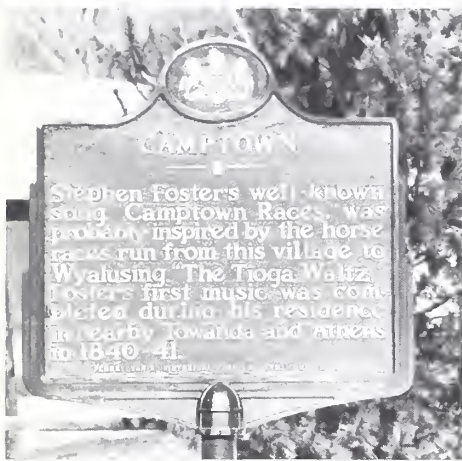 CAMPTOWN
Stephen Foster's well-known
song, Camptown Races, was
probably inspired by the horse
races run from this village to
Wyalusing. "The Tioga Waltz,"
Foster's first music, was com-
pleted during his residence
in nearby Towanda and Athens
in 1840-41.